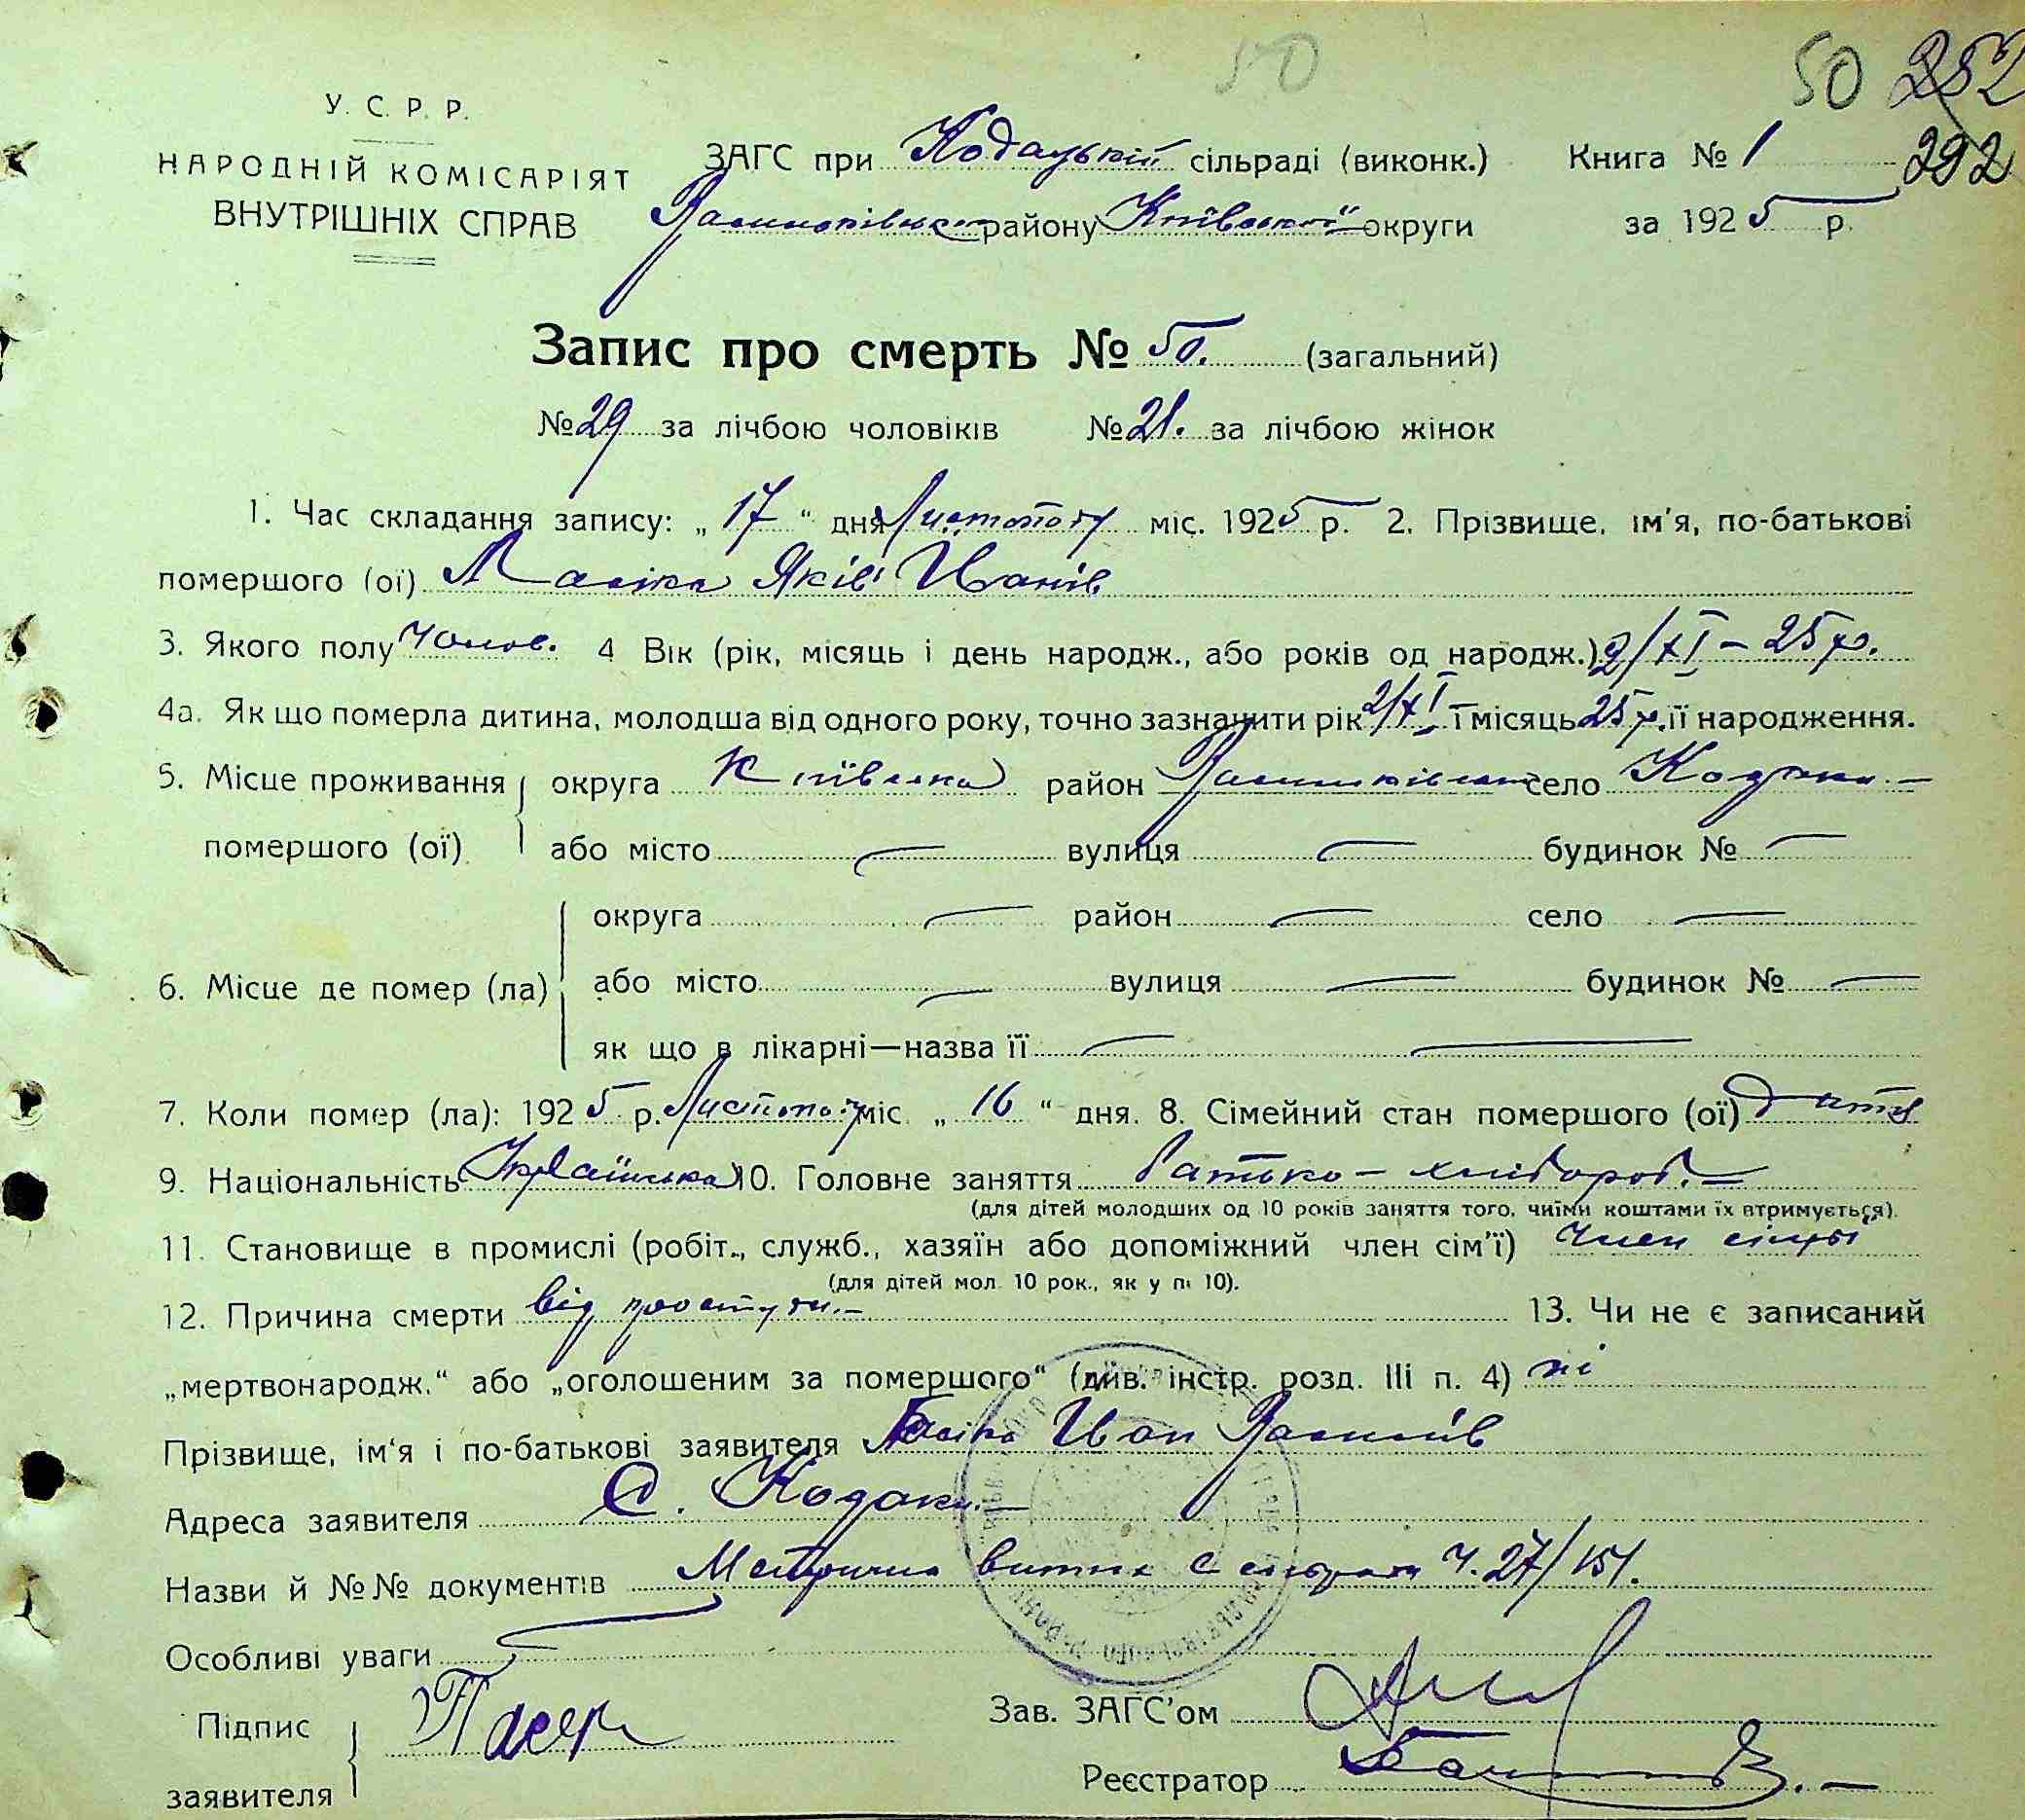 50
50 252
У. С. Р. Р.
НАРОДНІЙ КОМІСАРІЯТ
ВНУТРІШНІХ СПРАВ
ЗАГС при Кодацькій сільраді (виконк.)
Книга № 1
292
Васильківськ району Київської округи
за 1925 р.
Запис про смерть № 50. (загальний)
№ 29 за лічбою чоловіків № 21. за лічбою жінок
1. Час складання запису: „ 17 “ дня Листопаду міс. 1925 р. 2. Прізвище, ім'я, по-батькові
помершого (ої) Яків Іванів
3. Якого полу Чолов. 4 Вік (рік, місяць і день народж., або років од народж.) 2/XI – 25 р.
4а. Як що померла дитина, молодша від одного року, точно зазначити рік 2/XI і місяць 25 р. її народження.
5. Місце проживання округа Київська район Васильківський село Кодаки. –
помершого (ої) або місто — вулиця — будинок № —
округа — район — село —
6. Місце де помер (ла) або місто — вулиця — будинок № —
як що в лікарні—назва її — —
7. Коли помер (ла): 1925 р. Листопаду міс. „ 16 “ дня. 8. Сімейний стан помершого (ої) дитя
9. Національність Українська 10. Головне заняття Батько – хлібороб. –
(для дітей молодших од 10 років заняття того, чиїми коштами їх втримується).
11. Становище в промислі (робіт., служб., хазяїн або допоміжний член сім'ї) Член сімьї
(для дітей мол. 10 рок., як у п. 10).
12. Причина смерти від простуди. – 13. Чи не є записаний
„мертвонародж.“ або „оголошеним за помершого“ (див. інстр. розд. III п. 4) ні
Прізвище, ім'я і по-батькові заявителя Іван Васильів
Адреса заявителя С. Кодаки. –
Назви й №№ документів Метрична витяг Сельради Ч. 27/151.
Особливі уваги
Підпис
заявителя
Зав. ЗАГС'ом
Реєстратор